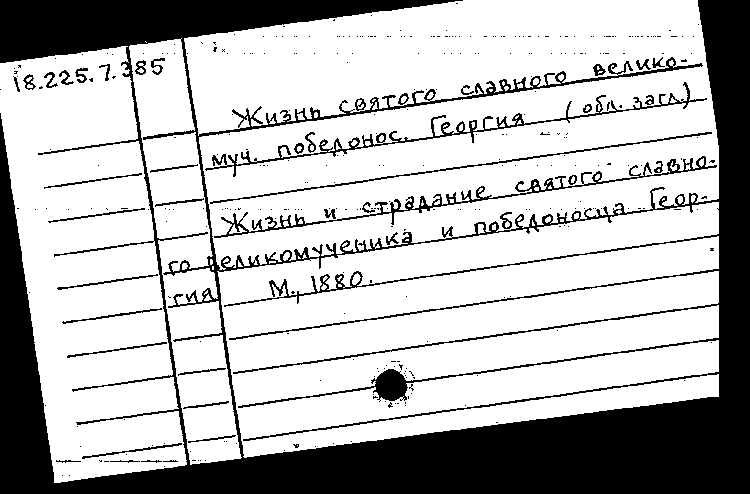 18.225.7.385
Жизнь святого славного велико-
муч. победонос. Георгия (обл. загл.)
Жизнь и страдание святого славно-
го великомученика и победоносца Геор-
гия М., 1880.